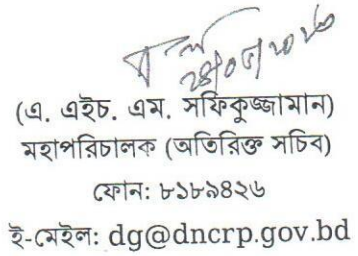 (এ. এইচ. এম. সফিকুজ্জামান)
মহাপরিচালক (অতিরিক্ত সচিব)
ফোন: ৮১৮৯৪২৬
ই-মেইল: dg@dncrp.gov.bd